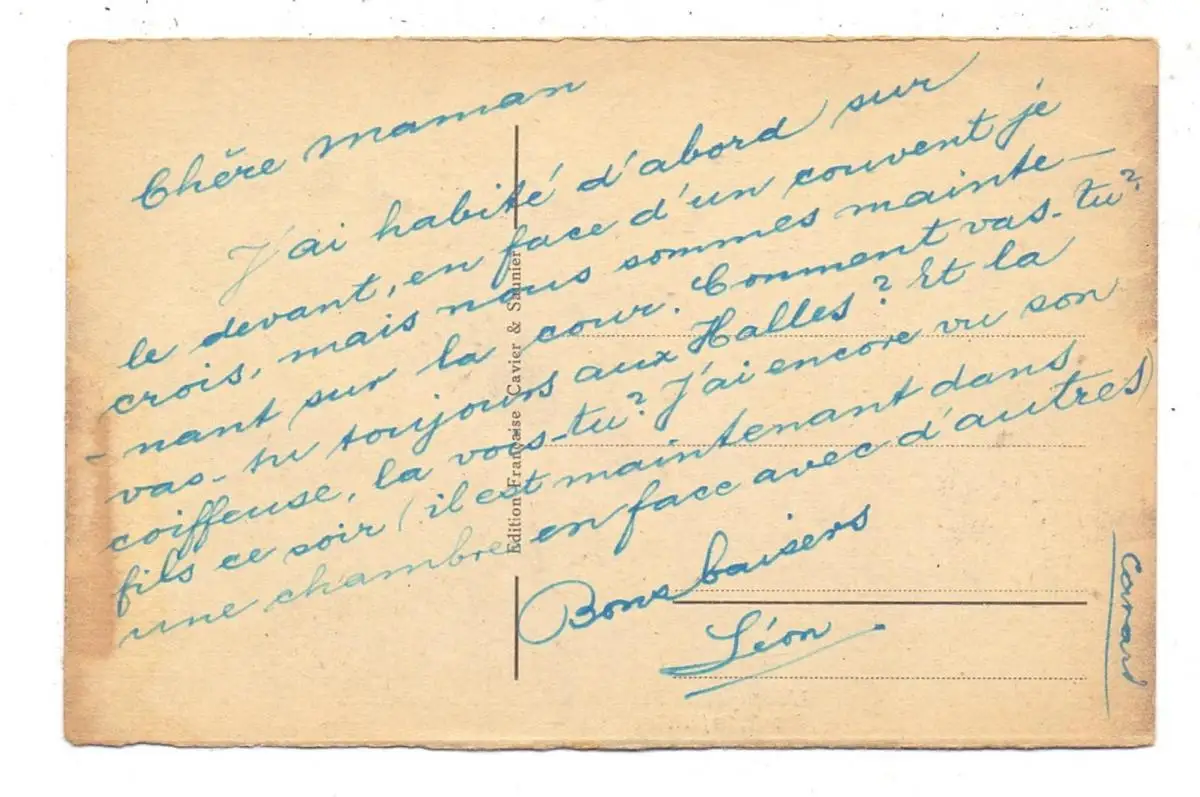 Chère maman
J'ai habité d'abord sur
le devant, en face d'un couvent je
crois, mais nous sommes mainte-
-nant sur la cour. Comment vas-tu?
vas-tu toujours aux Halles? Et la
coiffeuse, la vois-tu? J'ai encore vu son
fils ce soir (il est maintenant dans
une chambre en face avec d'autres)
Bons baisers
Léon
Edition Française Cavier & Saunier